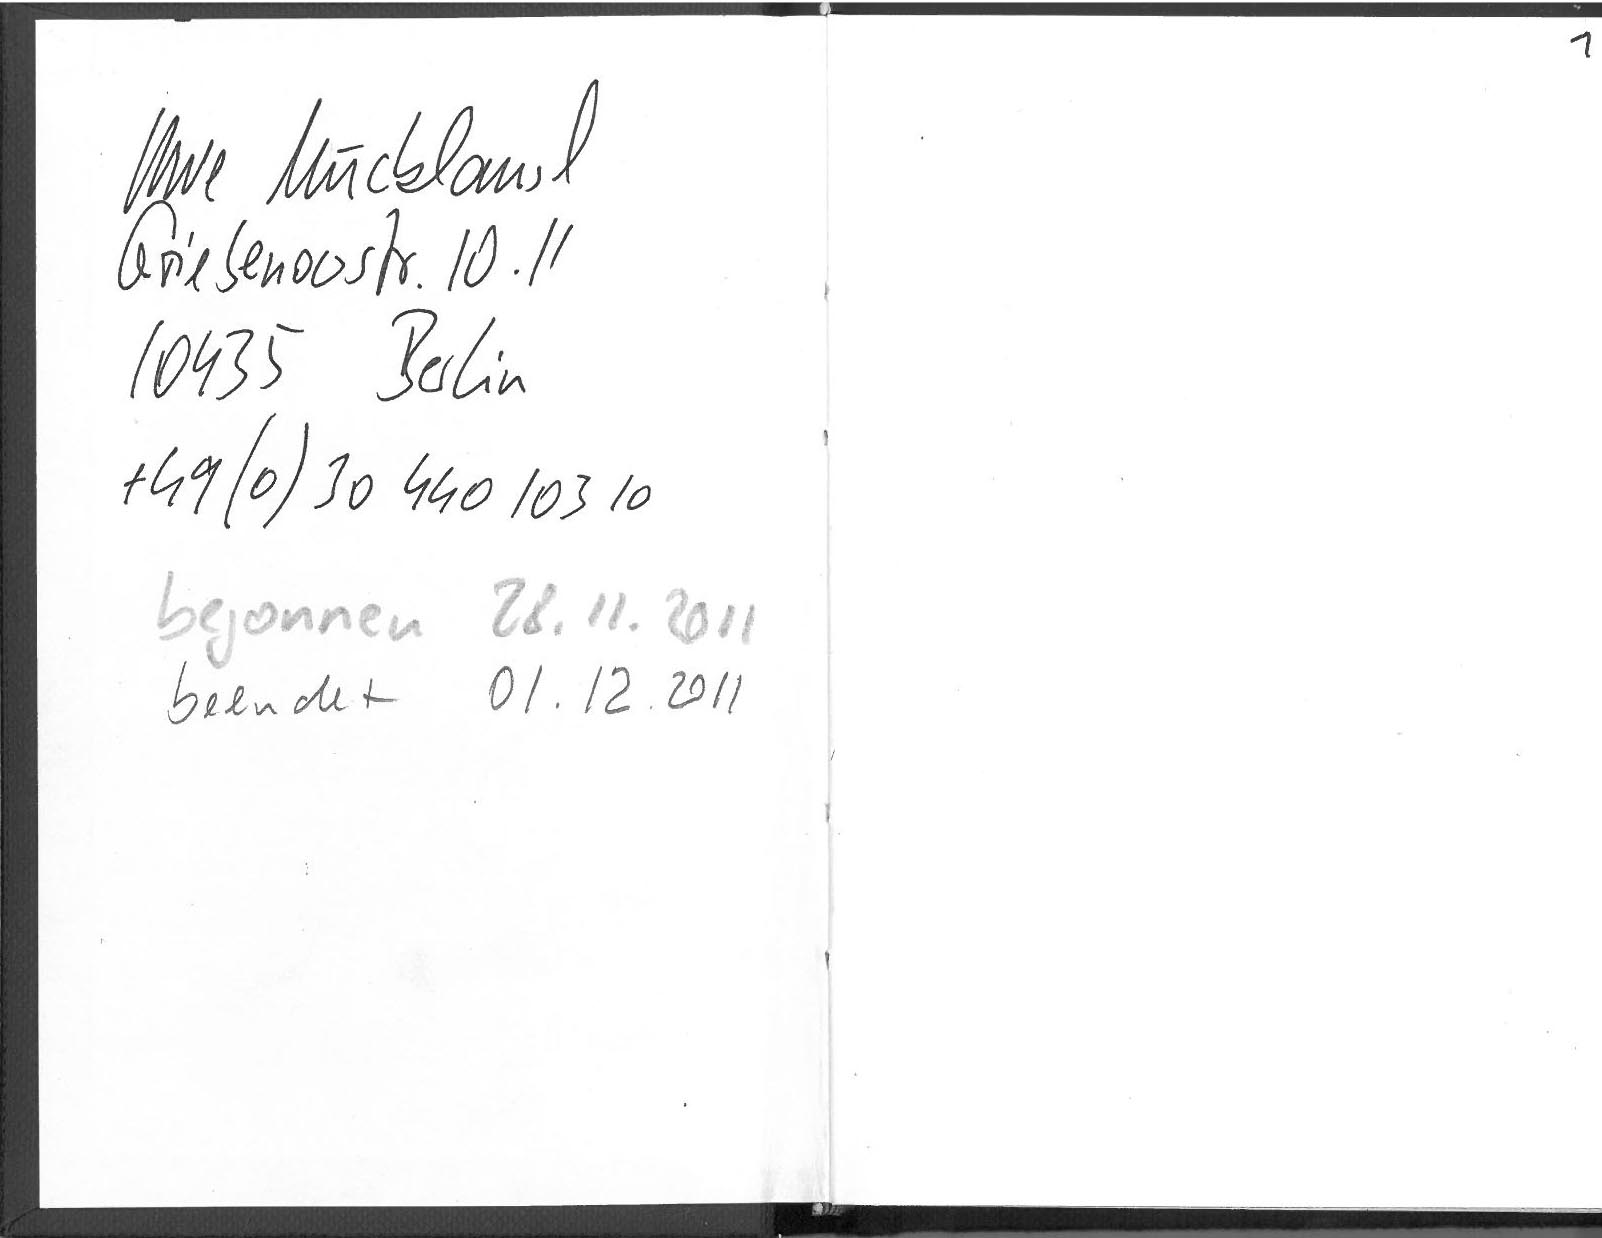 Uwe Mückland
Griebenowstr. 10.11
10435 Berlin
+49(0)30 440 103 10
begonnen 28.11.2011
beendet 01.12.2011
1